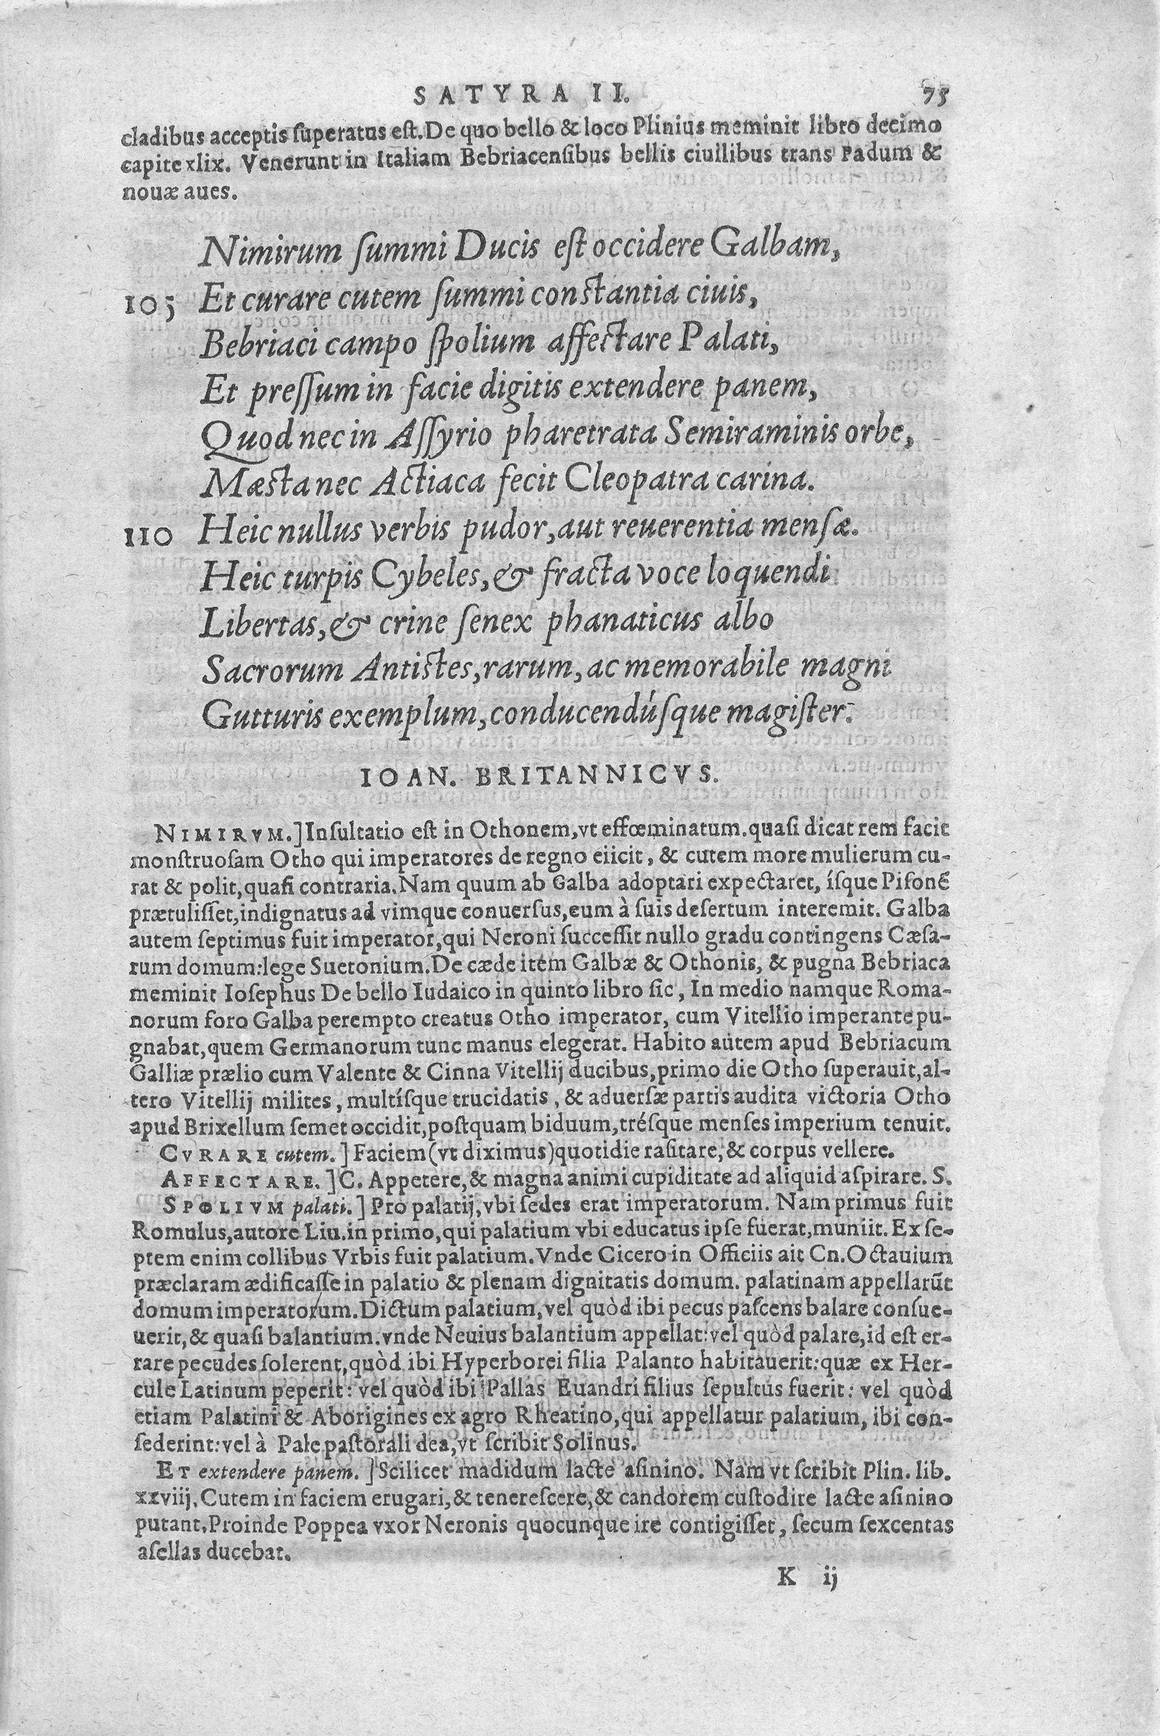 SATYRA II. 75
cladibus acceptis superatus est. De quo bello & loco Plinius meminit libro decimo
capite xlix. Venerunt in Italiam Bebriacensibus bellis ciuilibus trans Padum &
nouæ aues.
Nimirum summi Ducis est occidere Galbam,
105 Et curare cutem summi constantia ciuis,
Bebriaci campo spolium affectare Palati,
Et pressum in facie digitis extendere panem,
Quod nec in Assyrio pharetrata Semiraminis orbe,
Mæsta nec Actiaca fecit Cleopatra carina.
110 Heic nullus verbis pudor, aut reuerentia mensæ.
Heic turpis Cybeles, & fracta voce loquendi
Libertas, & crine senex phanaticus albo
Sacrorum Antistes, rarum, ac memorabile magni
Gutturis exemplum, conducendúsque magister.
IOAN. BRITANNICVS.
NIMIRVM.] Insultatio est in Othonem, vt effœminatum. quasi dicat rem facit
monstruosam Otho qui imperatores de regno eiicit, & cutem more mulierum cu-
rat & polit, quasi contraria. Nam quum ab Galba adoptari expectaret, ísque Pisonẽ
prætulisset, indignatus ad vimque conuersus, eum à suis desertum interemit. Galba
autem septimus fuit imperator, qui Neroni successit nullo gradu contingens Cæsa-
rum domum: lege Suetonium. De cæde itẽm Galbæ & Othonis, & pugna Bebriaca
meminit Iosephus De bello Iudaico in quinto libro sic, In medio namque Roma-
norum foro Galba perempto creatus Otho imperator, cum Vitellio imperante pu-
gnabat, quem Germanorum tunc manus elegerat. Habito autem apud Bebriacum
Galliæ prælio cum Valente & Cinna Vitellij ducibus, primo die Otho superauit, al-
tero Vitellij milites, multísque trucidatis, & aduersæ partis audita victoria Otho
apud Brixellum semet occidit, postquam biduum, trésque menses imperium tenuit.
CVRARE cutem.] Faciem (vt diximus) quotidie rasitare, & corpus vellere.
AFFECTARE.] C. Appetere, & magna animi cupiditate ad aliquid aspirare. S.
SPOLIVM palati.] Pro palatij, vbi sedes erat imperatorum. Nam primus fuit
Romulus, autore Liu. in primo, qui palatium vbi educatus ipse fuerat, muniit. Ex se-
ptem enim collibus Vrbis fuit palatium. Vnde Cicero in Officiis ait Cn. Octauium
præclaram ædificasse in palatio & plenam dignitatis domum. palatinam appellarũt
domum imperatorum. Dictum palatium, vel quòd ibi pecus pascens balare consue-
uerit, & quasi balantium. vnde Neuius balantium appellat: vel quòd palare, id est er-
rare pecudes solerent, quòd ibi Hyperborei filia Palanto habitauerit: quæ ex Her-
cule Latinum peperit: vel quòd ibi Pallas Euandri filius sepultus fuerit: vel quòd
etiam Palatini & Aborigines ex agro Rheatino, qui appellatur palatium, ibi con-
sederint: vel à Pale pastorali dea, vt scribit Solinus.
ET extendere panem.] Scilicet madidum lacte asinino. Nam vt scribit Plin. lib.
xxviij. Cutem in faciem erugari, & tenerescere, & candorem custodire lacte asinino
putant. Proinde Poppea vxor Neronis quocunque ire contigisset, secum sexcentas
asellas ducebat.
K ij